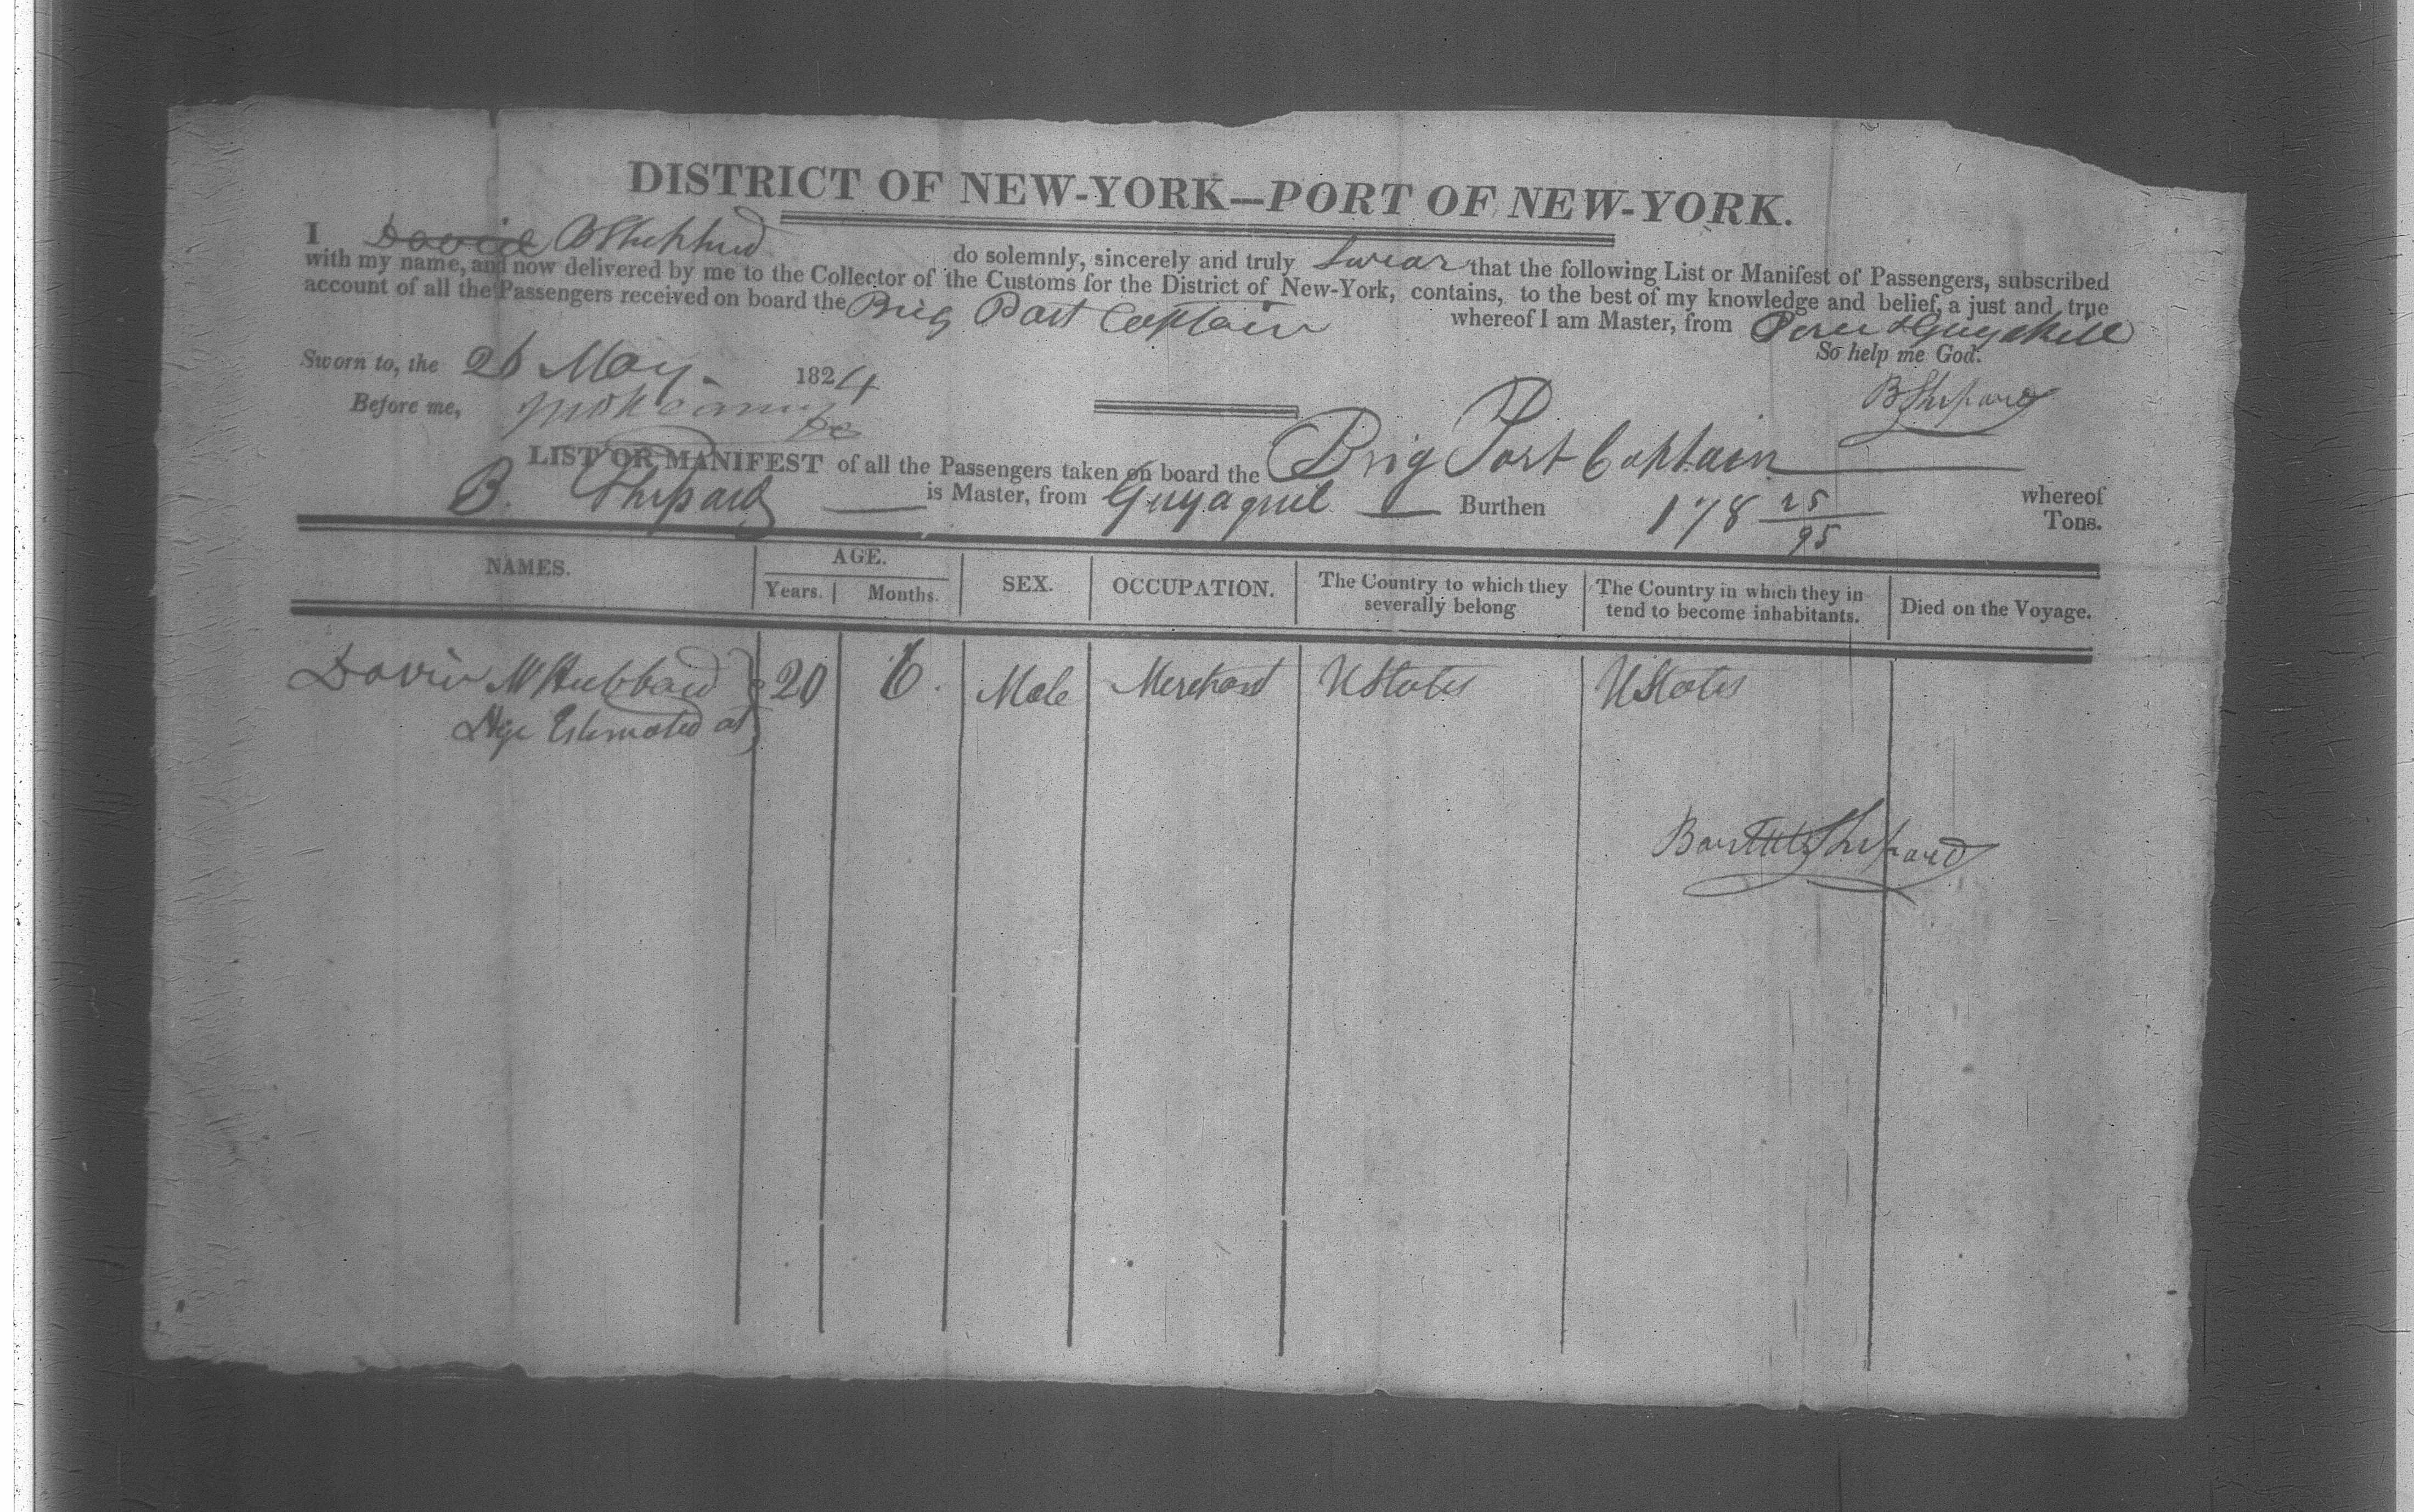 DISTRICT OF NEW-YORK—PORT OF NEW-YORK.
I David B Shephard do solemnly, sincerely and truly Swear that the following List or Manifest of Passengers, subscribed
with my name, and now delivered by me to the Collector of the Customs for the District of New-York, contains, to the best of my knowledge and belief, a just and true
account of all the Passengers received on board the Brig Post Captain whereof I am Master, from Peru &
So help me God.
Sworn to, the 26 May 1824
B Shepard
Before me,
LIST OR MANIFEST of all the Passengers taken on board the Brig Post Captain whereof
B. Shepard is Master, from Guyaquil Burthen 178 25/95 Tons.
NAMES. AGE. SEX. OCCUPATION. The Country to which they severally belong The Country in which they in tend to become inhabitants. Died on the Voyage.
Years. Months.
David W Hubbard 20 6. Male Merchant UStates UStates
Age Estimated at
Shepard